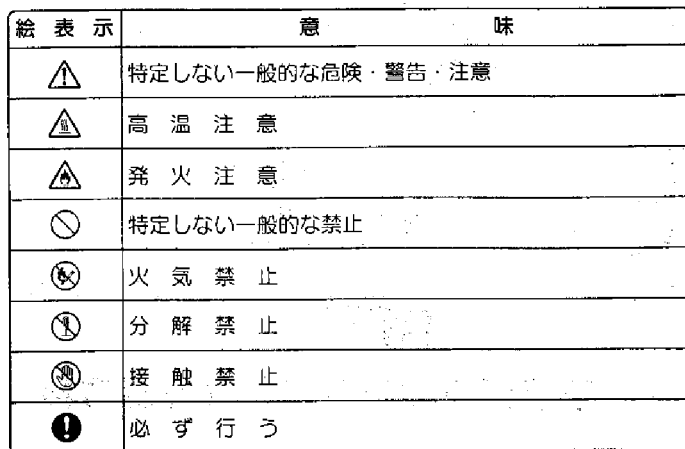 絵表示 意味
特定しない一般的な危険・警告・注意
高温注意
発火注意
特定しない一般的な禁止
火気禁止
分解禁止
接触禁止
必ず行う